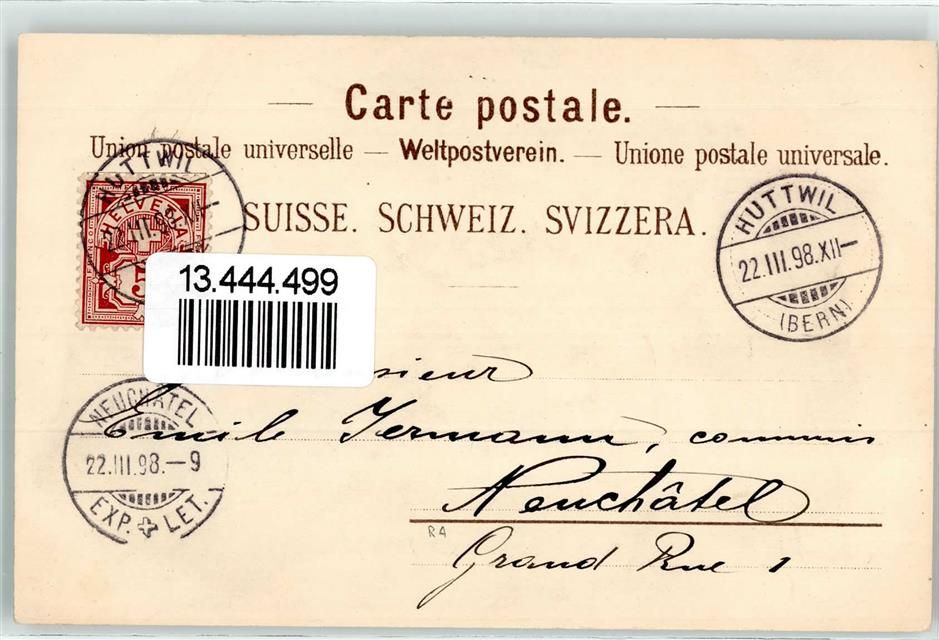 Carte postale.
Union postale universelle — Weltpostverein. — Unione postale universale.
SUISSE. SCHWEIZ. SVIZZERA.
HUTTWIL
HELVETIA
HUTTWIL
22.III.98.XII—
(BERN)
13.444.499
sieur
Emile Jermann, commis
Neuchâtel
Grand Rue 1
R4
NEUCHATEL
22.III.98.—9
EXP. LET.